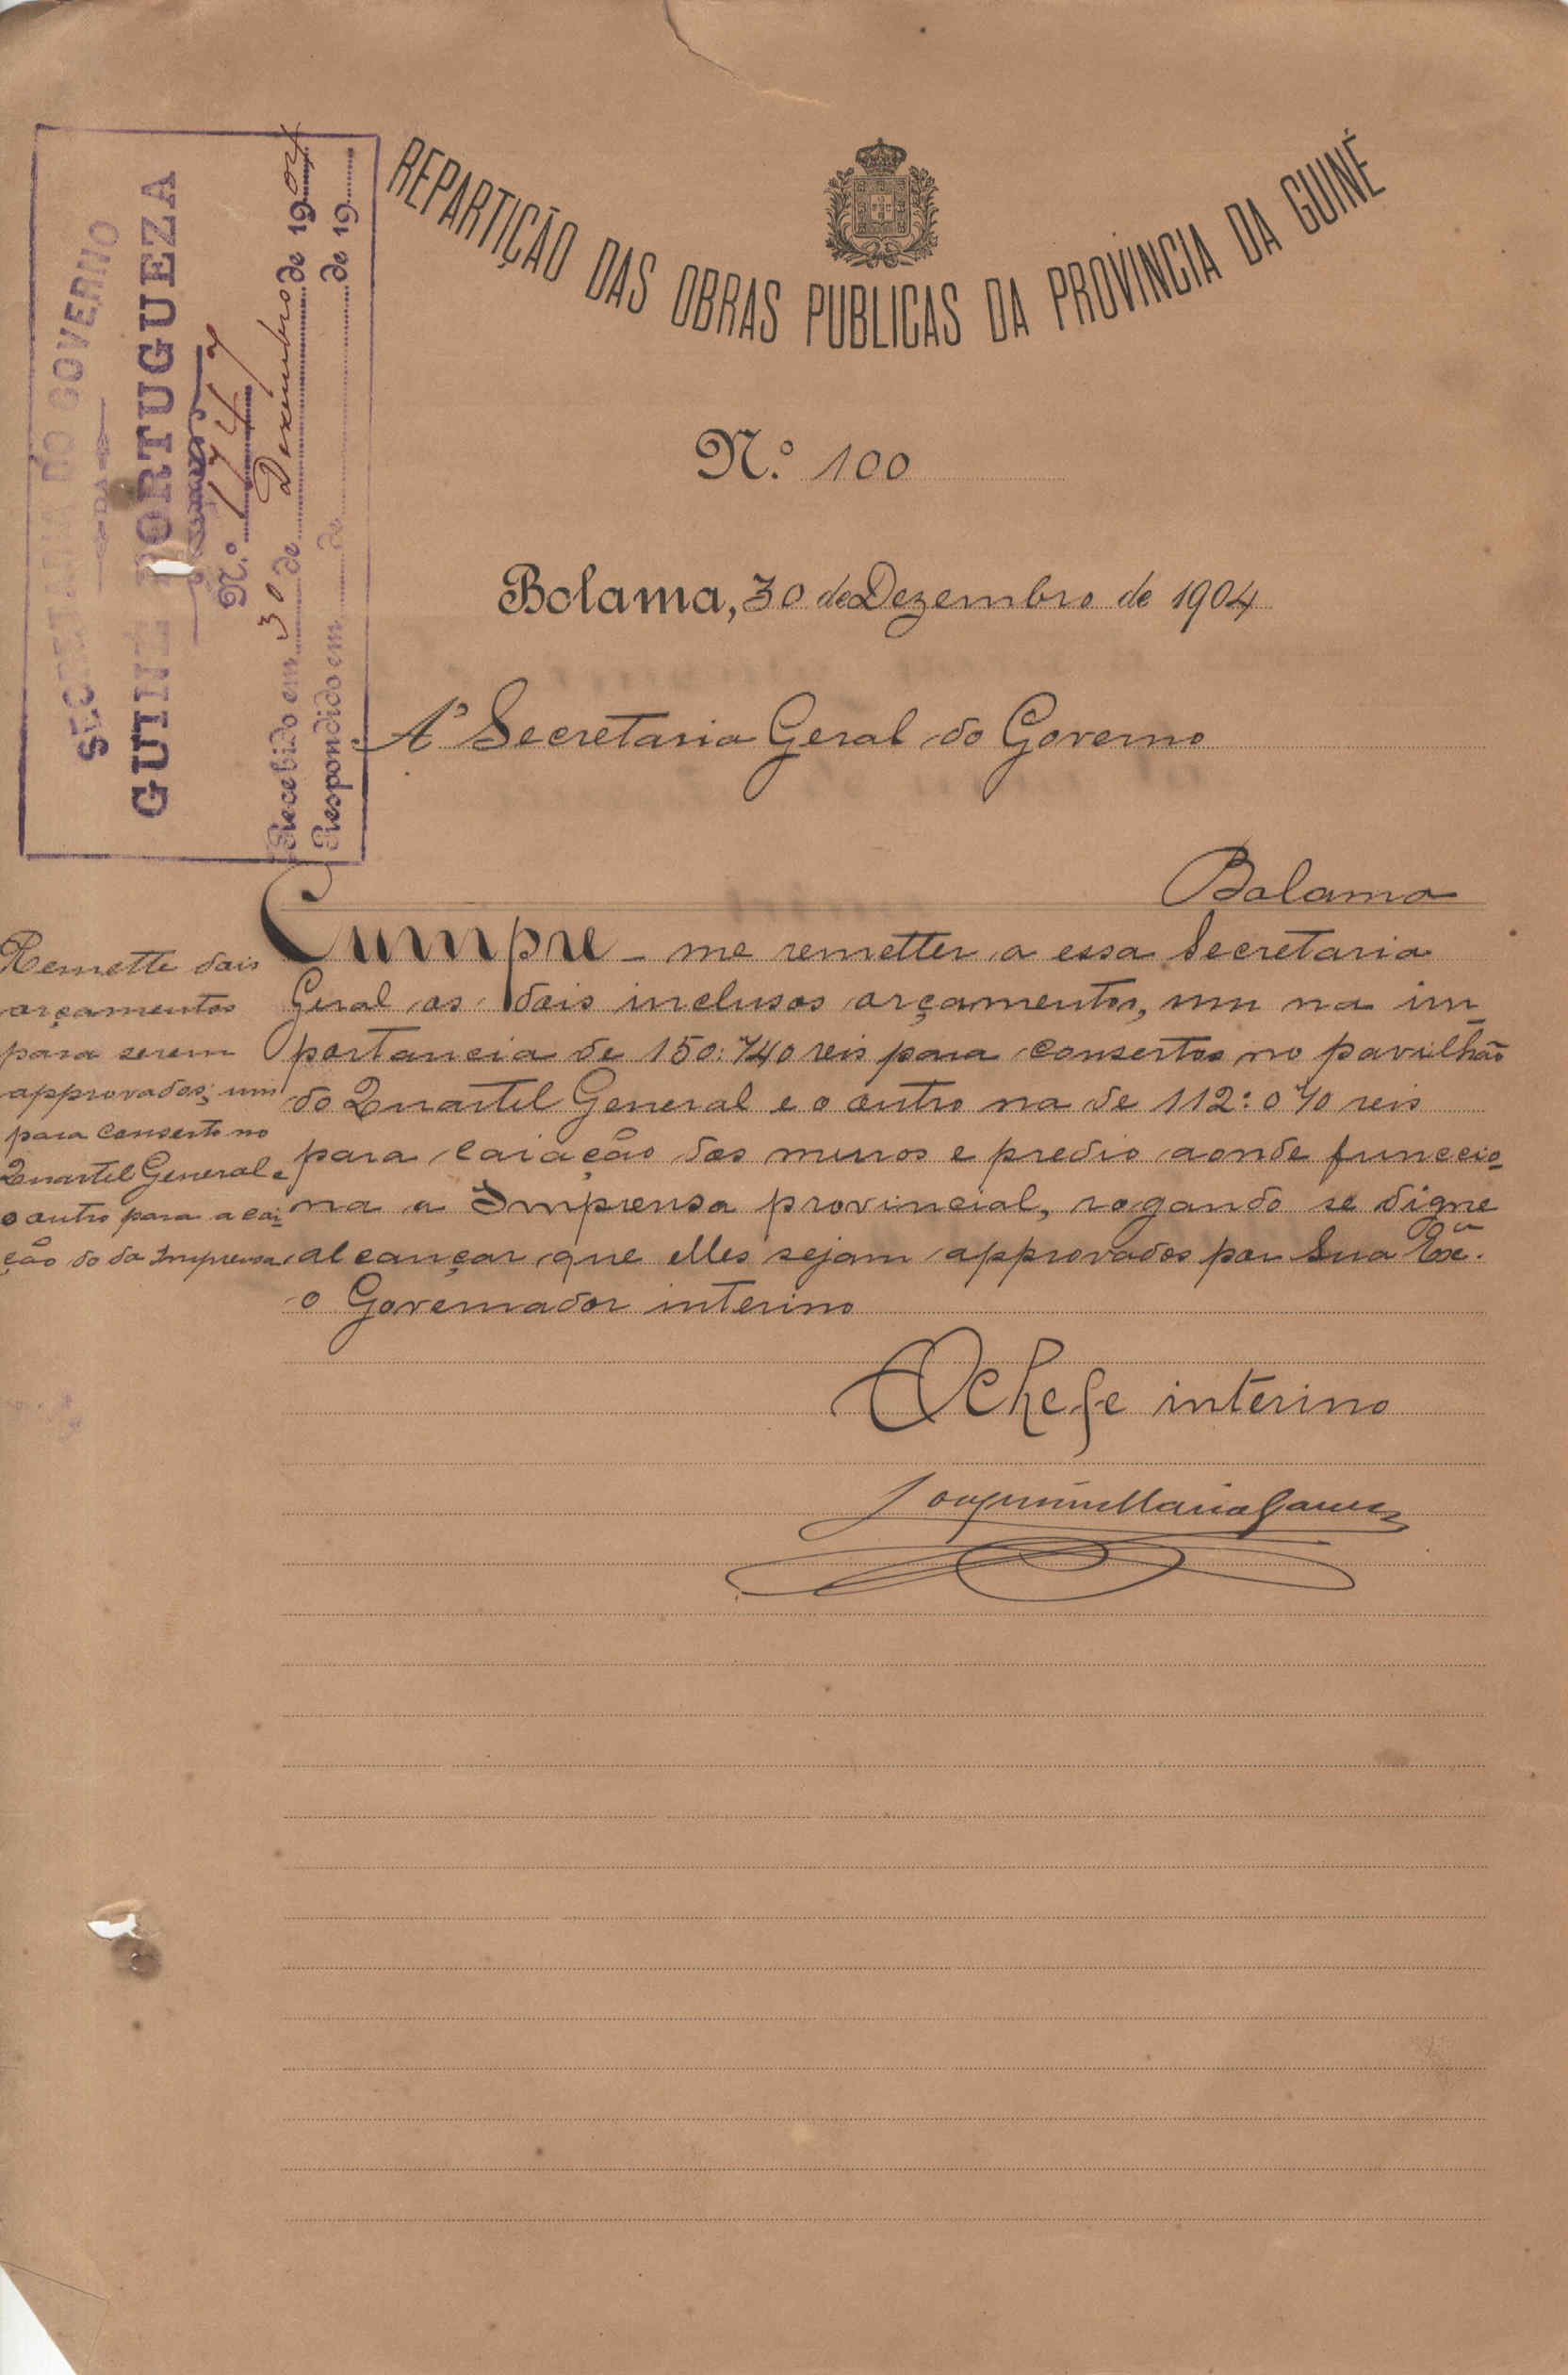 REPARTIÇÃO DAS OBRAS PUBLICAS DA PROVINCIA DA GUINÉ
SECRETARIA DO GOVERNO
DA
GUINÉ PORTUGUEZA
N.º 1747
Recebido em 30 de Dezembro de 1904
Respondido em de de 19
N.º 100
Bolama, 30 de Dezembro de 1904
Á Secretaria Geral do Governo
Bolama
Remette dois
orçamentos
para serem
approvados; um
para conserto no
Quartel General e
o outro para a cai-
ção do da Imprensa
Cumpre-me remetter a essa Secretaria
Geral os dois inclusos orçamentos, um na im-
portancia de 150:740 reis para consertos no pavilhão
do Quartel General e o outro na de 112:070 reis
para caiação dos muros e predio aonde funccio-
na a Imprensa provincial, rogando se digne
alcançar que elles sejam approvados por Sua Exª.
o Governador interino
O Chefe interino
Joaquim Maria